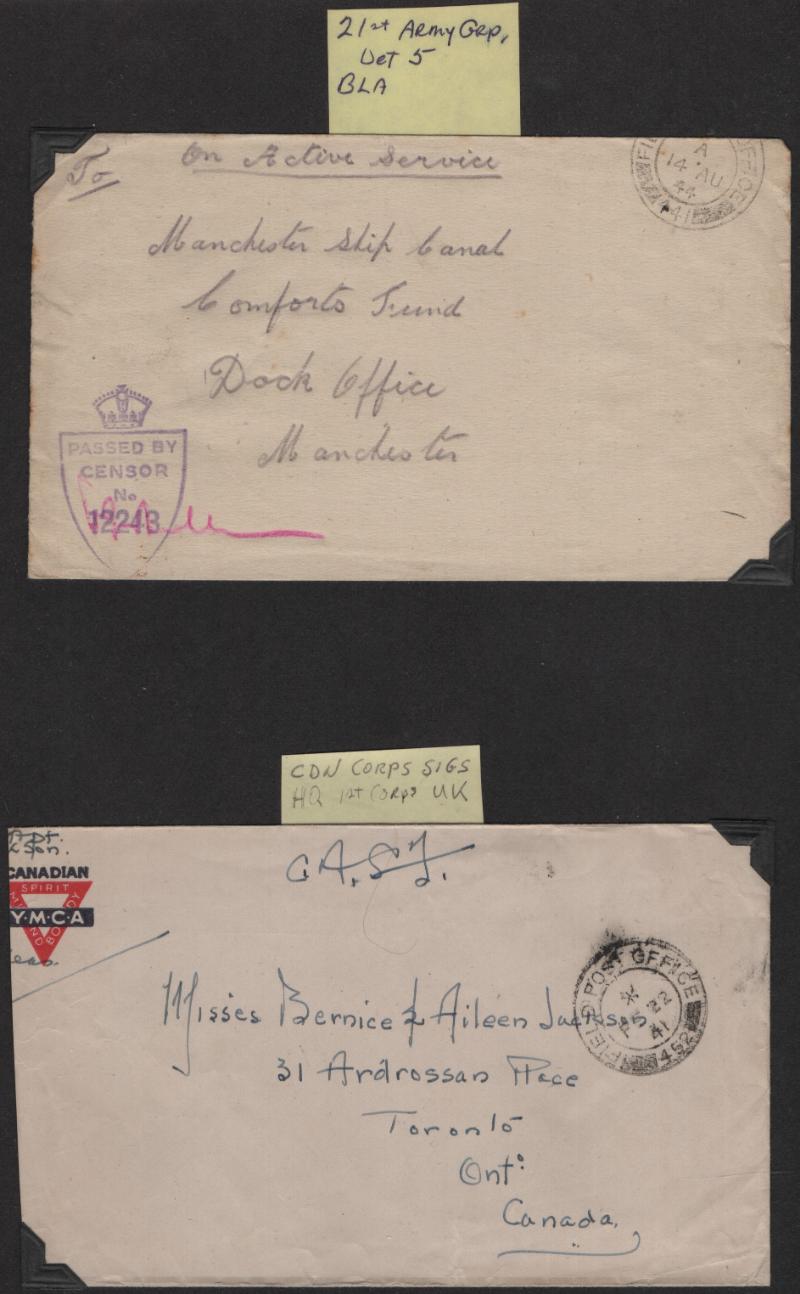 21st Army Grp,
Det 5
BLA
To
On Active Service
Manchester Ship Canal
Comforts Fund
Dock Office
Manchester
A
14 AU
44
441
PASSED BY
CENSOR
No
12243
CDN CORPS SIGS
HQ 1st Corps UK
C.A.S.F.
CANADIAN
SPIRIT
Y·M·C·A
MIND
BODY
FIELD POST OFFICE
22
41
452
Misses Bernice & Aileen Jackson
31 Ardrossan Place
Toronto
Ont:
Canada.